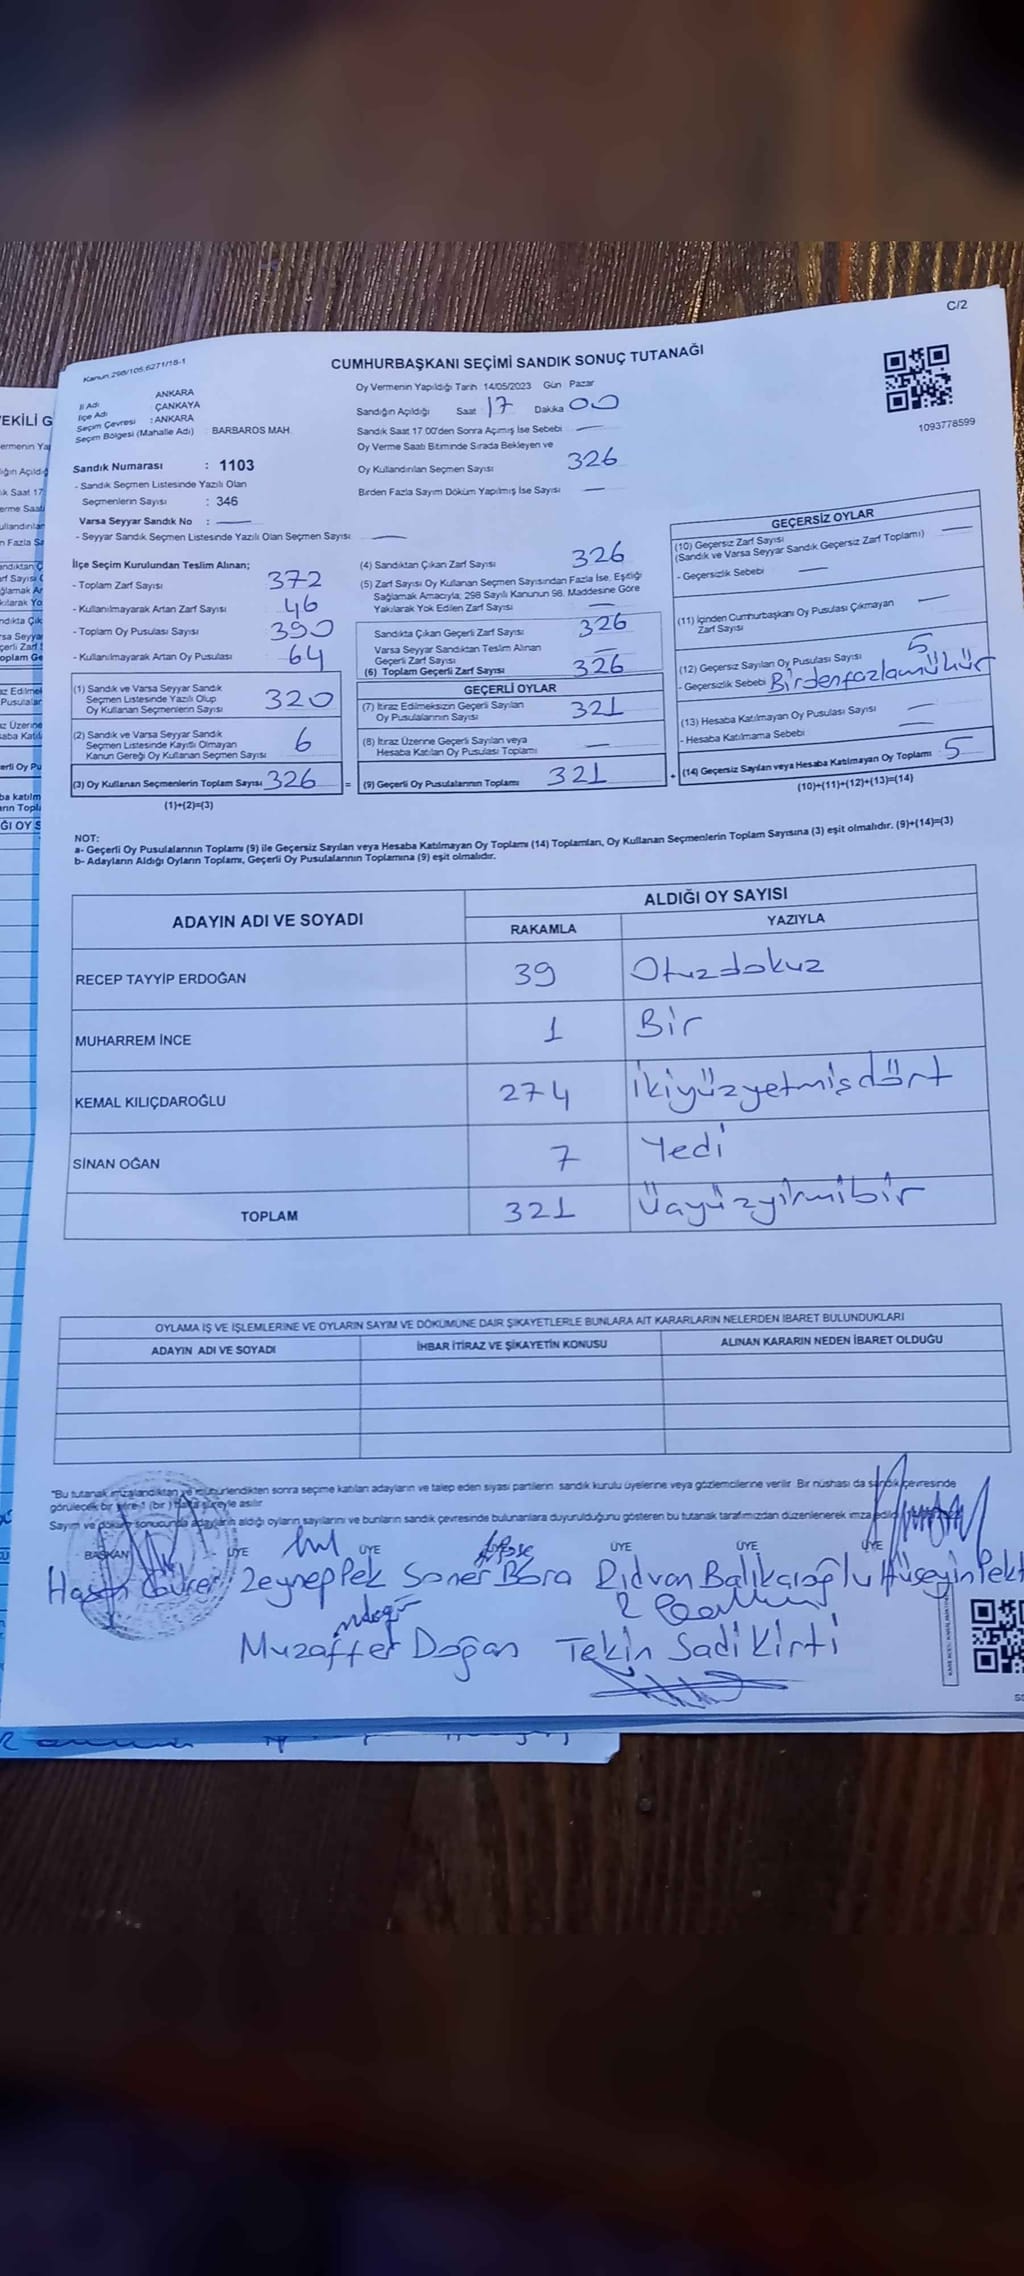 C/2
Kanun.298/105,6271/18-1
CUMHURBAŞKANI SEÇİMİ SANDIK SONUÇ TUTANAĞI
1093778599
İl Adı ANKARA
İlçe Adı ÇANKAYA
Seçim Çevresi : ANKARA
Seçim Bölgesi (Mahalle Adı) BARBAROS MAH.
Sandık Numarası : 1103
- Sandık Seçmen Listesinde Yazılı Olan
Seçmenlerin Sayısı : 346
Varsa Seyyar Sandık No :
- Seyyar Sandık Seçmen Listesinde Yazılı Olan Seçmen Sayısı
Oy Vermenin Yapıldığı Tarih 14/05/2023 Gün Pazar
Sandığın Açıldığı Saat 17 Dakika 00
Sandık Saat 17:00'den Sonra Açımış İse Sebebi
Oy Verme Saati Bitiminde Sırada Bekleyen ve
Oy Kullandırılan Seçmen Sayısı 326
Birden Fazla Sayım Döküm Yapılmış İse Sayısı
İlçe Seçim Kurulundan Teslim Alınan;
- Toplam Zarf Sayısı 372
- Kullanılmayarak Artan Zarf Sayısı 46
- Toplam Oy Pusulası Sayısı 390
- Kullanılmayarak Artan Oy Pusulası 64
(1) Sandık ve Varsa Seyyar Sandık
Seçmen Listesinde Yazılı Olup
Oy Kullanan Seçmenlerin Sayısı 320
(2) Sandık ve Varsa Seyyar Sandık
Seçmen Listesinde Kayıtlı Olmayan
Kanun Gereği Oy Kullanan Seçmen Sayısı 6
(3) Oy Kullanan Seçmenlerin Toplam Sayısı 326 =
(1)+(2)=(3)
(4) Sandıktan Çıkan Zarf Sayısı 326
(5) Zarf Sayısı Oy Kullanan Seçmen Sayısından Fazla İse, Eşitliği
Sağlamak Amacıyla, 298 Sayılı Kanunun 98. Maddesine Göre
Yakılarak Yok Edilen Zarf Sayısı
Sandıkta Çıkan Geçerli Zarf Sayısı 326
Varsa Seyyar Sandıktan Teslim Alınan
Geçerli Zarf Sayısı
(6) Toplam Geçerli Zarf Sayısı 326
GEÇERLİ OYLAR
(7) İtiraz Edilmeksizin Geçerli Sayılan
Oy Pusulalarının Sayısı 321
(8) İtiraz Üzerine Geçerli Sayılan veya
Hesaba Katılan Oy Pusulası Toplamı
(9) Geçerli Oy Pusulalarının Toplamı 321 +
GEÇERSİZ OYLAR
(10) Geçersiz Zarf Sayısı
(Sandık ve Varsa Seyyar Sandık Geçersiz Zarf Toplamı)
- Geçersizlik Sebebi
(11) İçinden Cumhurbaşkanı Oy Pusulası Çıkmayan
Zarf Sayısı
(12) Geçersiz Sayılan Oy Pusulası Sayısı 5
- Geçersizlik Sebebi Birdenfazlamühür
(13) Hesaba Katılmayan Oy Pusulası Sayısı
- Hesaba Katılmama Sebebi
(14) Geçersiz Sayılan veya Hesaba Katılmayan Oy Toplamı 5
(10)+(11)+(12)+(13)=(14)
NOT:
a- Geçerli Oy Pusulalarının Toplamı (9) ile Geçersiz Sayılan veya Hesaba Katılmayan Oy Toplamı (14) Toplamları, Oy Kullanan Seçmenlerin Toplam Sayısına (3) eşit olmalıdır. (9)+(14)=(3)
b- Adayların Aldığı Oyların Toplamı, Geçerli Oy Pusulalarının Toplamına (9) eşit olmalıdır.
ADAYIN ADI VE SOYADI ALDIĞI OY SAYISI
RAKAMLA YAZIYLA
RECEP TAYYİP ERDOĞAN 39 Otuzdokuz
MUHARREM İNCE 1 Bir
KEMAL KILIÇDAROĞLU 274 İkiyüzyetmişdört
SİNAN OĞAN 7 Yedi
TOPLAM 321 Üçyüzyirmibir
OYLAMA İŞ VE İŞLEMLERİNE VE OYLARIN SAYIM VE DÖKÜMÜNE DAİR ŞİKAYETLERLE BUNLARA AİT KARARLARIN NELERDEN İBARET BULUNDUKLARI
ADAYIN ADI VE SOYADI İHBAR İTİRAZ VE ŞİKAYETİN KONUSU ALINAN KARARIN NEDEN İBARET OLDUĞU
"Bu tutanak imzalandıktan ve mühürlendikten sonra seçime katılan adayların ve talep eden siyasi partilerin sandık kurulu üyelerine veya gözlemcilerine verilir. Bir nüshası da sandık çevresinde
görülecek bir yere 1 (bir) hafta süreyle asılır
Sayım ve döküm sonucunda adayların aldığı oyların sayılarını ve bunların sandık çevresinde bulunanlara duyurulduğunu gösteren bu tutanak tarafımızdan düzenlenerek imza edildi
BAŞKAN ÜYE ÜYE ÜYE ÜYE ÜYE
Zeynep Pek Soner Bora Rıdvan Balıkcıoğlu Hüseyin Pekt
Muzaffer Doğan Tekin Sadi Kirti